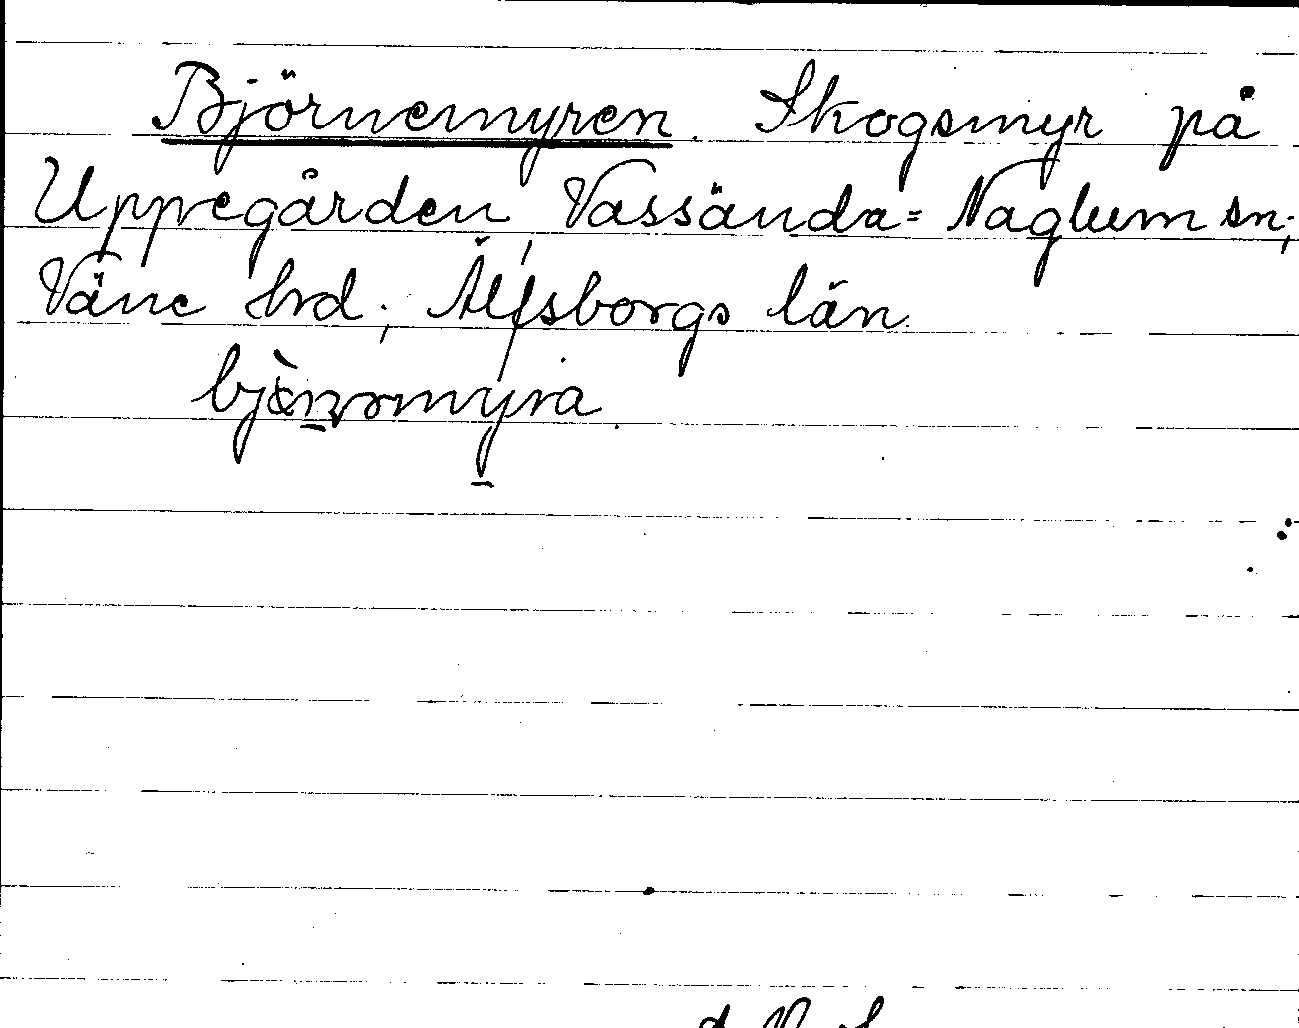 Björnemyren. Skogsmyr på
Uppegården, Vassända=Naglum sn;
Väne hrd; Älfsborgs län.